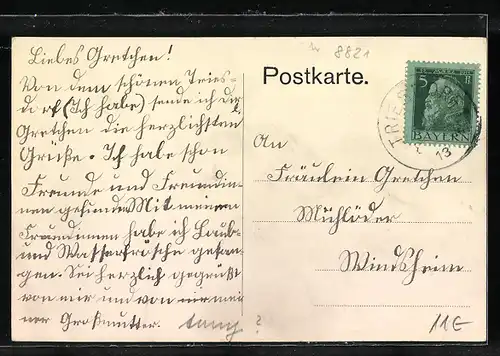 Liebes Gretchen!
Von dem schönen Tries-
dorf (Ich habe) sende ich dir
Gretchen die herzlichsten
Grüße. Ich habe schon
Freunde und Freundin-
nen gefunden. Mit meinen
Freundinnen habe ich Laub-
und Wasserfrösche gefan-
gen. Sei herzlich gegrüßt
von mir und von mei-
ner Großmutter.
8821
Postkarte.
5
BAYERN
TRIE
13
An
Fräulein Gretchen
Mühlöder
Windsheim
11€